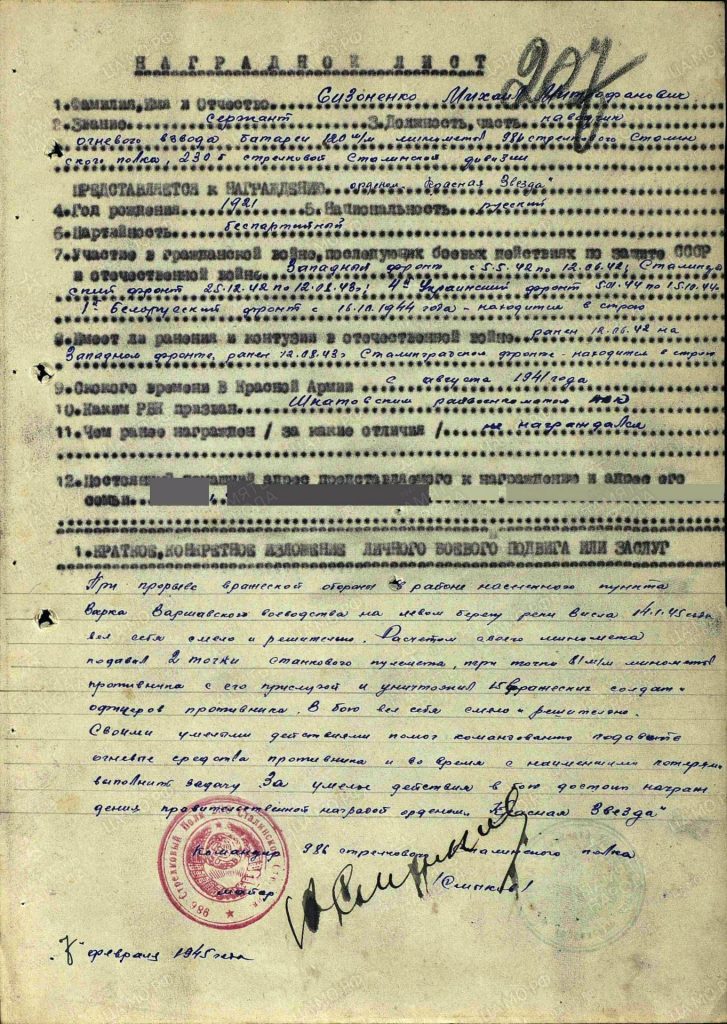 НАГРАДНОЙ ЛИСТ
207
1.Фамилия,Имя и Отчество... Сизоненко Михаил Митрофанович
2.Звание... сержант 3.Должность,часть. наводчик
огневого взвода батареи 120 м/м минометов 986 стрелкового Сталин
ского полка, 230 й стрелковой Сталинской дивизии
ПРЕДСТАВЛЯЕТСЯ К НАГРАЖДЕНИЮ. орденом „Красная Звезда"
4.Год рождения... 1921 5.Национальность... русский
6.Партийность... беспартийный
7.Участие в гражданской войне,последующих боевых действиях по защите СССР
и отечественной войне. Западный фронт с 5.5.42 по 12.06.42; Сталинград
ский фронт 25.12.42 по 12.02.43г; 4й Украинский фронт 5.01.44 по 15.10.44
1й Белорусский фронт с 16.10.1944 года - находится в строю
8.Имеет ли ранения и контузии в отечественной войне. ранен 12.06.42 на
Западном фронте, ранен 12.02.43г Сталинградском фронте - находится в строю
9.Скокого времени В Красной Армии... с августа 1941 года
10.Каким РВК призван... райвоенкоматом
11.Чем ранее награжден / за какие отличия /... не награждался
12.Постоянный домашний адрес представляемого к награждению и адрес его
семьи..
1.КРАТКОЕ,КОНКРЕТНОЕ ИЗЛОЖЕНИЕ ЛИЧНОГО БОЕВОГО ПОДВИГА ИЛИ ЗАСЛУГ
При прорыве вражеской обороны в районе населенного пункта
Варка Варшавского воеводства на левом берегу реки Висла 14.1.45 года
вел себя смело и решительно. Расчетом своего миномета
подавил 2 точки станкового пулемета, три точки 81 м/м минометов
противника с его прислугой и уничтожил 15 вражеских солдат и
офицеров противника. В бою вел себя смело и решительно.
Своими умелыми действиями помог командованию подавить
огневые средства противника и во время с наименшими потерями
выполнить задачу За умелые действия в бою достоин награж
дения правительственной наградой орденом „Красная Звезда"
Командир 986 стрелкового Сталинского полка
майор /Смыков/
„7" февраля 1945 года